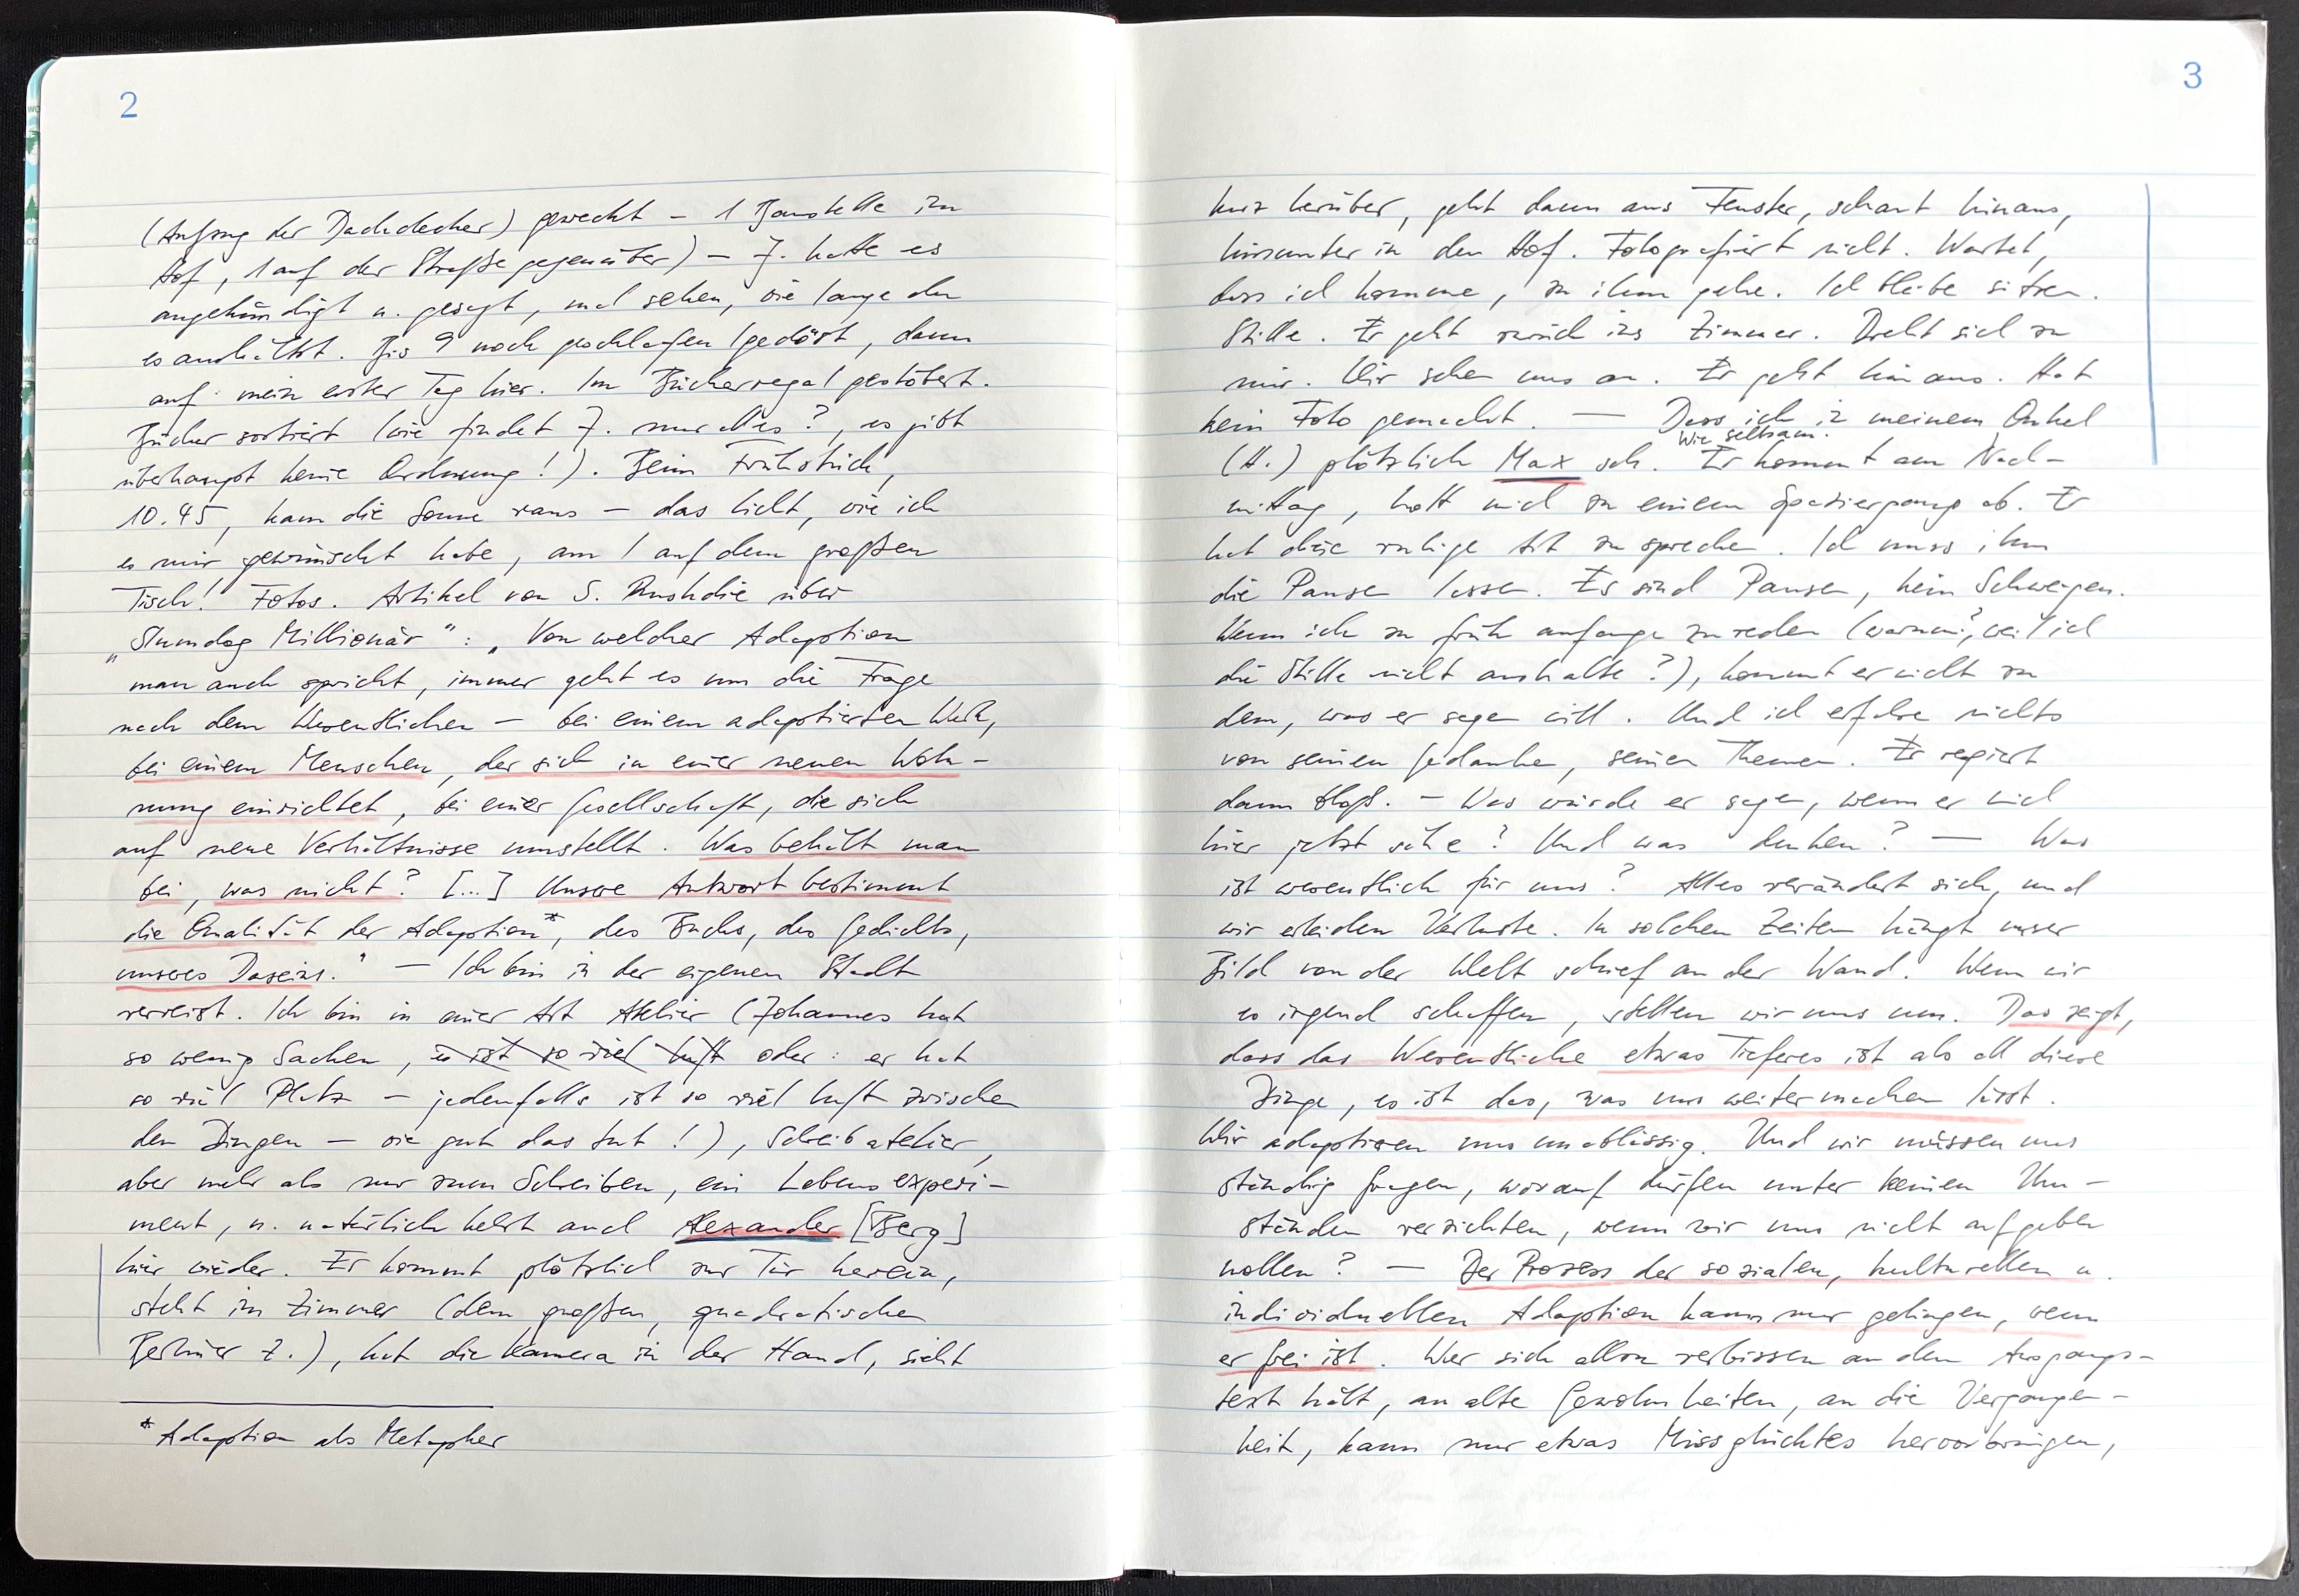 2
(Aufzug der Dachdecker) geweckt – 1 Baustelle im
Hof, 1 auf der Straße gegenüber) – J. hatte es
angekündigt u. gesagt, mal sehen, wie lange du
es aushältst. Bis 9 noch geschlafen/gedöst, dann
auf: mein erster Tag hier. Im Bücherregal gestöbert.
Bücher sortiert (wie findet J. nur alles?, es gibt
überhaupt keine Ordnung!). Beim Frühstück,
10.45, kam die Sonne raus – das Licht, wie ich
es mir gewünscht habe, am / auf dem großen
Tisch! Fotos. Artikel von S. Rushdie über
„Slumdog Millionär“: „Von welcher Adaption
man auch spricht, immer geht es um die Frage
nach dem Wesentlichen – bei einem adaptierten Werk,
bei einem Menschen, der sich in einer neuen Woh-
nung einrichtet, bei einer Gesellschaft, die sich
auf neue Verhältnisse umstellt. Was behält man
bei, was nicht? [...] Unsere Antwort bestimmt
die Qualität der Adaption*, des Buchs, des Gedichts,
unseres Daseins.“ – Ich bin in der eigenen Stadt
verreist. Ich bin in einer Art Atelier (Johannes hat
so wenig Sachen, es ist so viel Luft oder: er hat
so viel Platz – jedenfalls ist so viel Luft zwischen
den Dingen – wie gut das tut!), Schreibatelier,
aber mehr als nur zum Schreiben, ein Lebensexperi-
ment, u. natürlich kehrt auch Alexander [Berg]
hier wieder. Er kommt plötzlich zur Tür herein,
steht im Zimmer (dem großen, quadratischen
Berliner Z.), hat die Kamera in der Hand, sieht
* Adaption als Metapher
3
kurz herüber, geht dann ans Fenster, schaut hinaus,
hinunter in den Hof. Fotografiert nicht. Wartet,
dass ich komme, zu ihm gehe. Ich bleibe sitzen.
Stille. Er geht zurück ins Zimmer. Dreht sich zu
mir. Wir sehen uns an. Er geht hinaus. Hat
kein Foto gemacht. — Dass ich in meinem Onkel
(H.) plötzlich Max seh. Wie seltsam. Er kommt am Nach-
mittag, holt mich zu einem Spaziergang ab. Er
hat diese ruhige Art zu sprechen. Ich muss ihm
die Pausen lassen. Es sind Pausen, kein Schweigen.
Wenn ich zu früh anfange zu reden (warum?, weil ich
die Stille nicht aushalte?), kommt er nicht zu
dem, was er sagen will. Und ich erfahre nichts
von seinen Gedanken, seinen Themen. Er reagiert
dann bloß. – Was würde er sagen, wenn er mich
hier jetzt sähe? Und was denken? — Was
ist wesentlich für uns? Alles verändert sich, und
wir erleiden Verluste. In solchen Zeiten hängt unser
Bild von der Welt schief an der Wand. Wenn wir
es irgend schaffen, stellen wir uns um. Das zeigt,
dass das Wesentliche etwas Tieferes ist als all diese
Dinge, es ist das, was uns weitermachen lässt.
Wir adaptieren uns unablässig. Und wir müssen uns
ständig fragen, worauf dürfen unter keinen Um-
ständen verzichten, wenn wir uns nicht aufgeben
wollen? — Der Prozess der sozialen, kulturellen u.
individuellen Adaption kann nur gelingen, wenn
er frei ist. Wer sich allzu verbissen an den Ausgangs-
text hält, an alte Gewohnheiten, an die Vergangen-
heit, kann nur etwas Missglücktes hervorbringen,